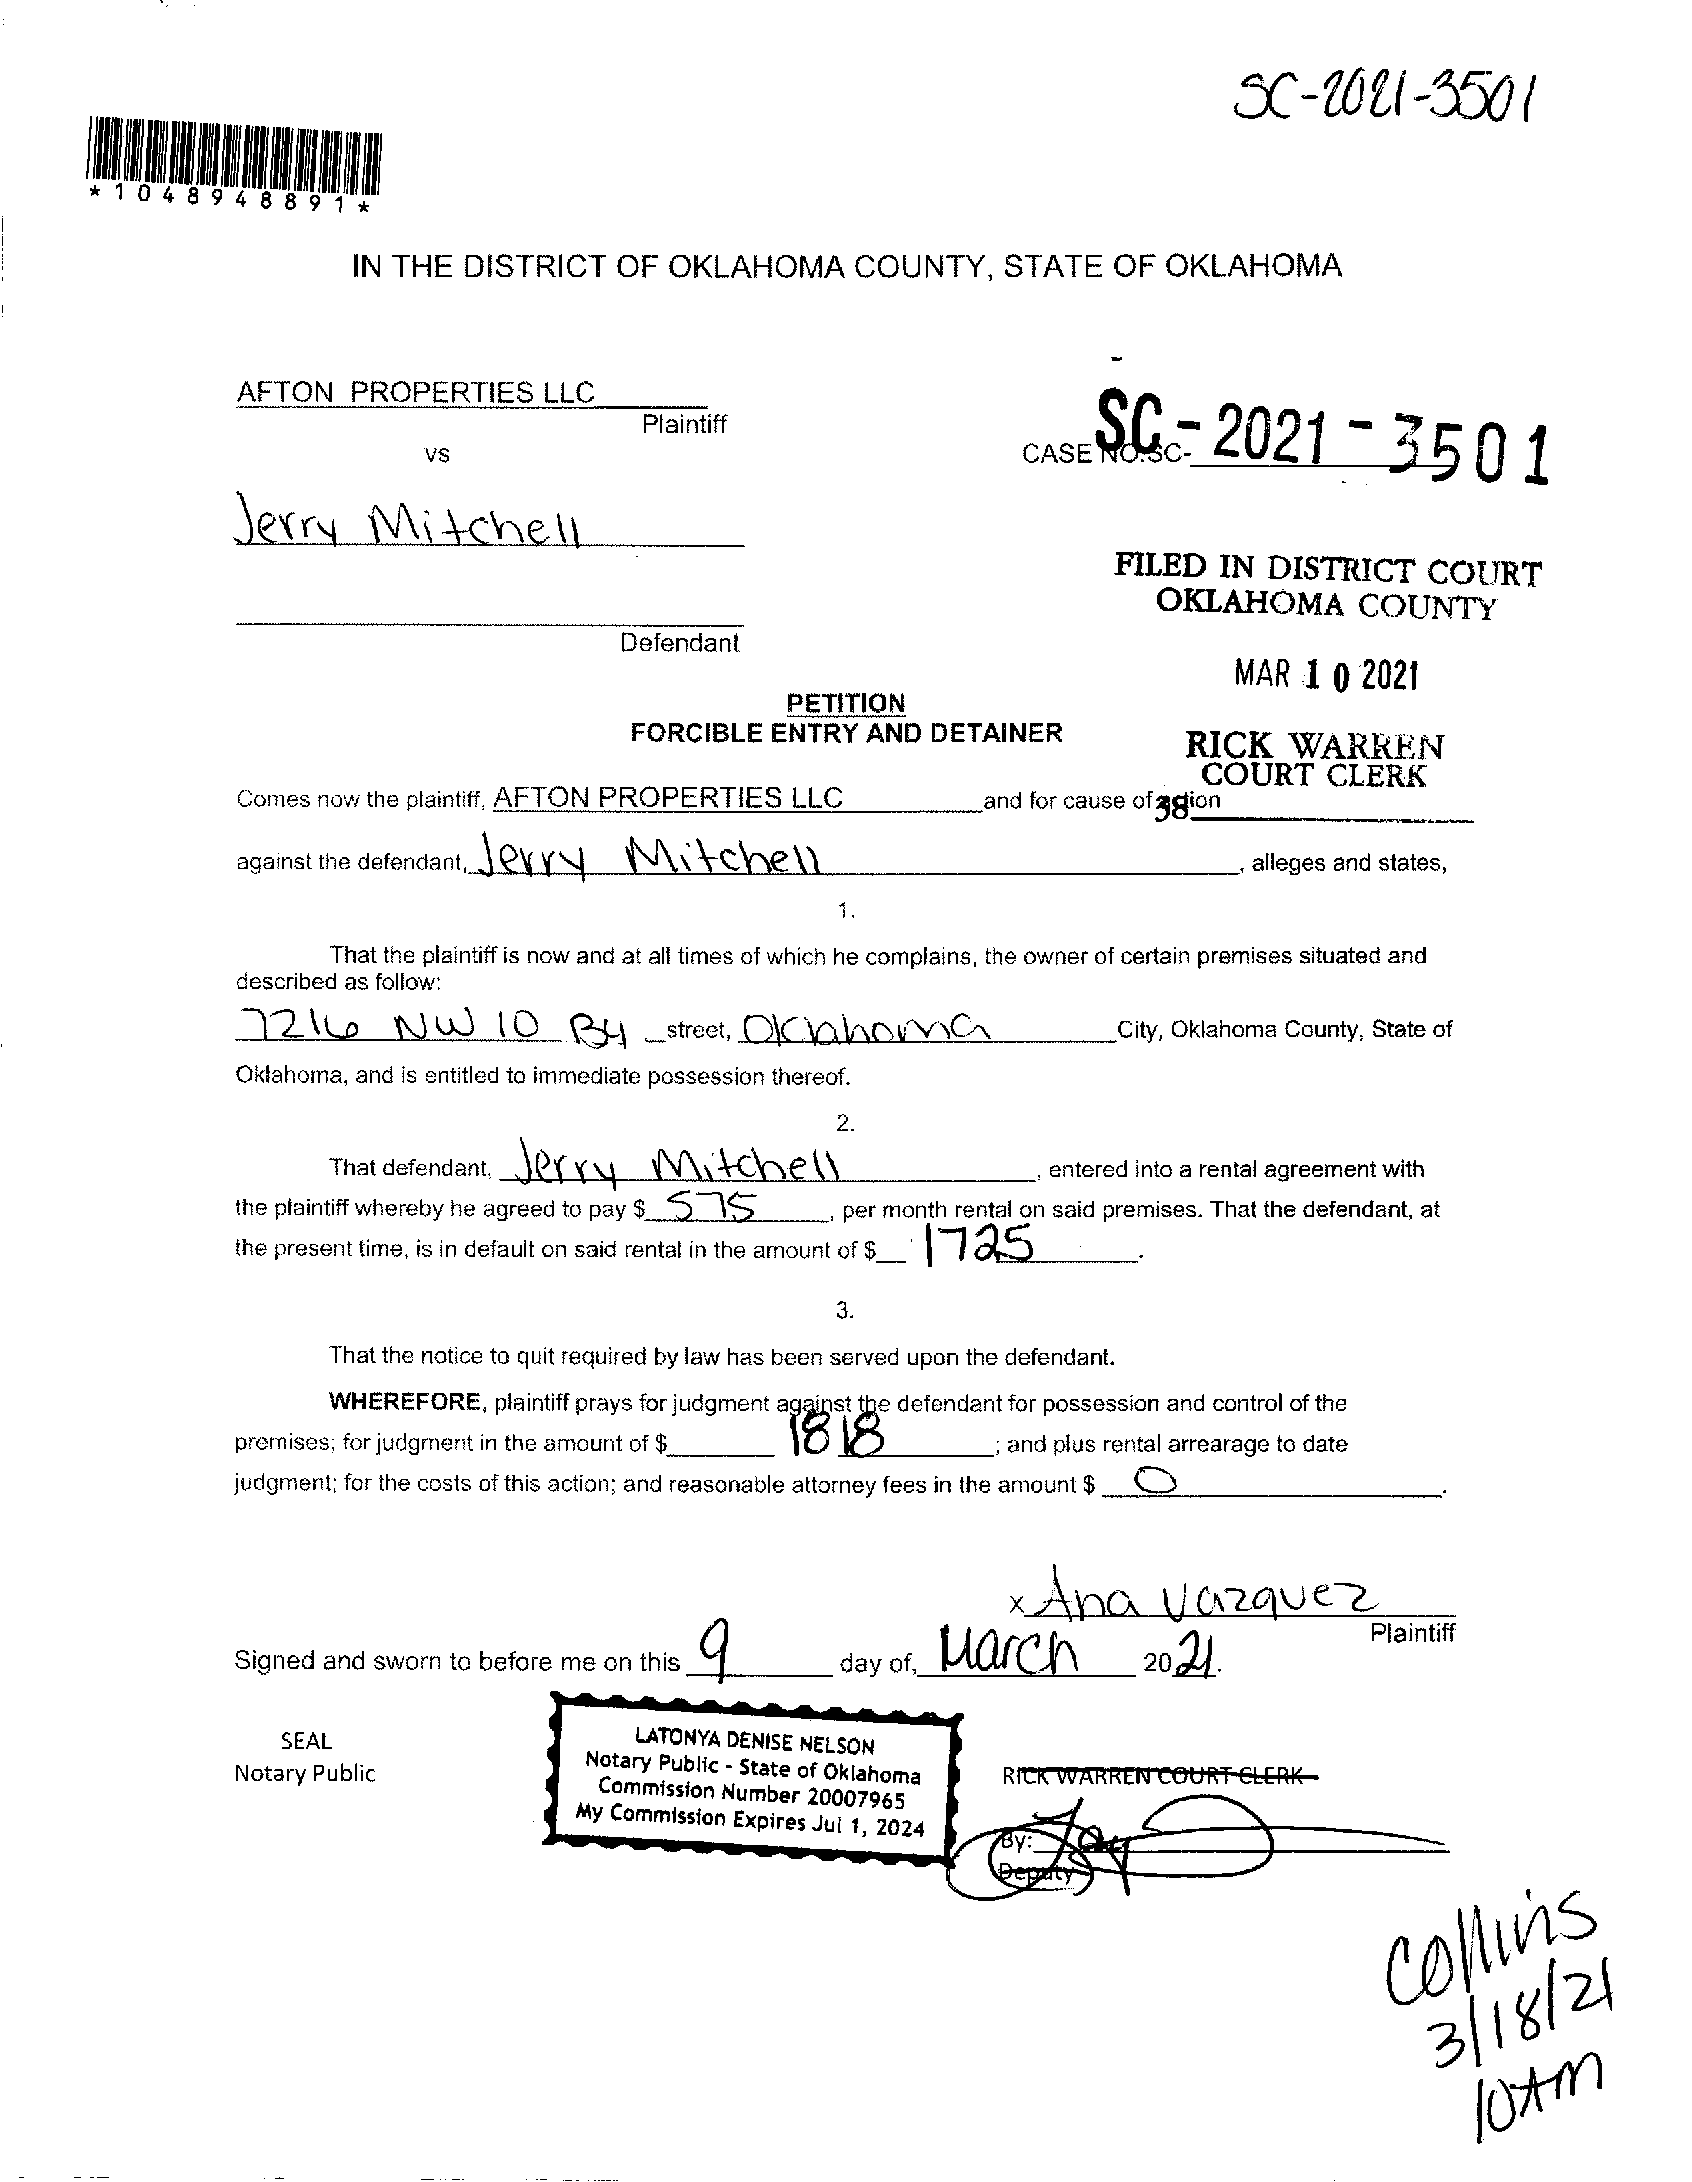 SC-2021-3501
*1048948891*
IN THE DISTRICT OF OKLAHOMA COUNTY, STATE OF OKLAHOMA
AFTON PROPERTIES LLC
Plaintiff
vs
CASE NO.SC- SC-2021-3501
Jerry Mitchell
FILED IN DISTRICT COURT
OKLAHOMA COUNTY
Defendant
MAR 10 2021
PETITION
FORCIBLE ENTRY AND DETAINER
RICK WARREN
COURT CLERK
Comes now the plaintiff, AFTON PROPERTIES LLC and for cause of action
38
against the defendant, Jerry Mitchell, alleges and states,
1.
That the plaintiff is now and at all times of which he complains, the owner of certain premises situated and
described as follow:
7216 NW 10 B4 street, Oklahoma City, Oklahoma County, State of
Oklahoma, and is entitled to immediate possession thereof.
2.
That defendant, Jerry Mitchell, entered into a rental agreement with
the plaintiff whereby he agreed to pay $ 575, per month rental on said premises. That the defendant, at
the present time, is in default on said rental in the amount of $ 1725.
3.
That the notice to quit required by law has been served upon the defendant.
WHEREFORE, plaintiff prays for judgment against the defendant for possession and control of the
premises; for judgment in the amount of $ 1818; and plus rental arrearage to date
judgment; for the costs of this action; and reasonable attorney fees in the amount $ 0.
x Ana Vazquez
Plaintiff
Signed and sworn to before me on this 9 day of, March 2021.
SEAL
Notary Public
LATONYA DENISE NELSON
Notary Public - State of Oklahoma
Commission Number 20007965
My Commission Expires Jul 1, 2024
RICK WARREN COURT CLERK
By:
Deputy
Collins
3/18/21
10AM